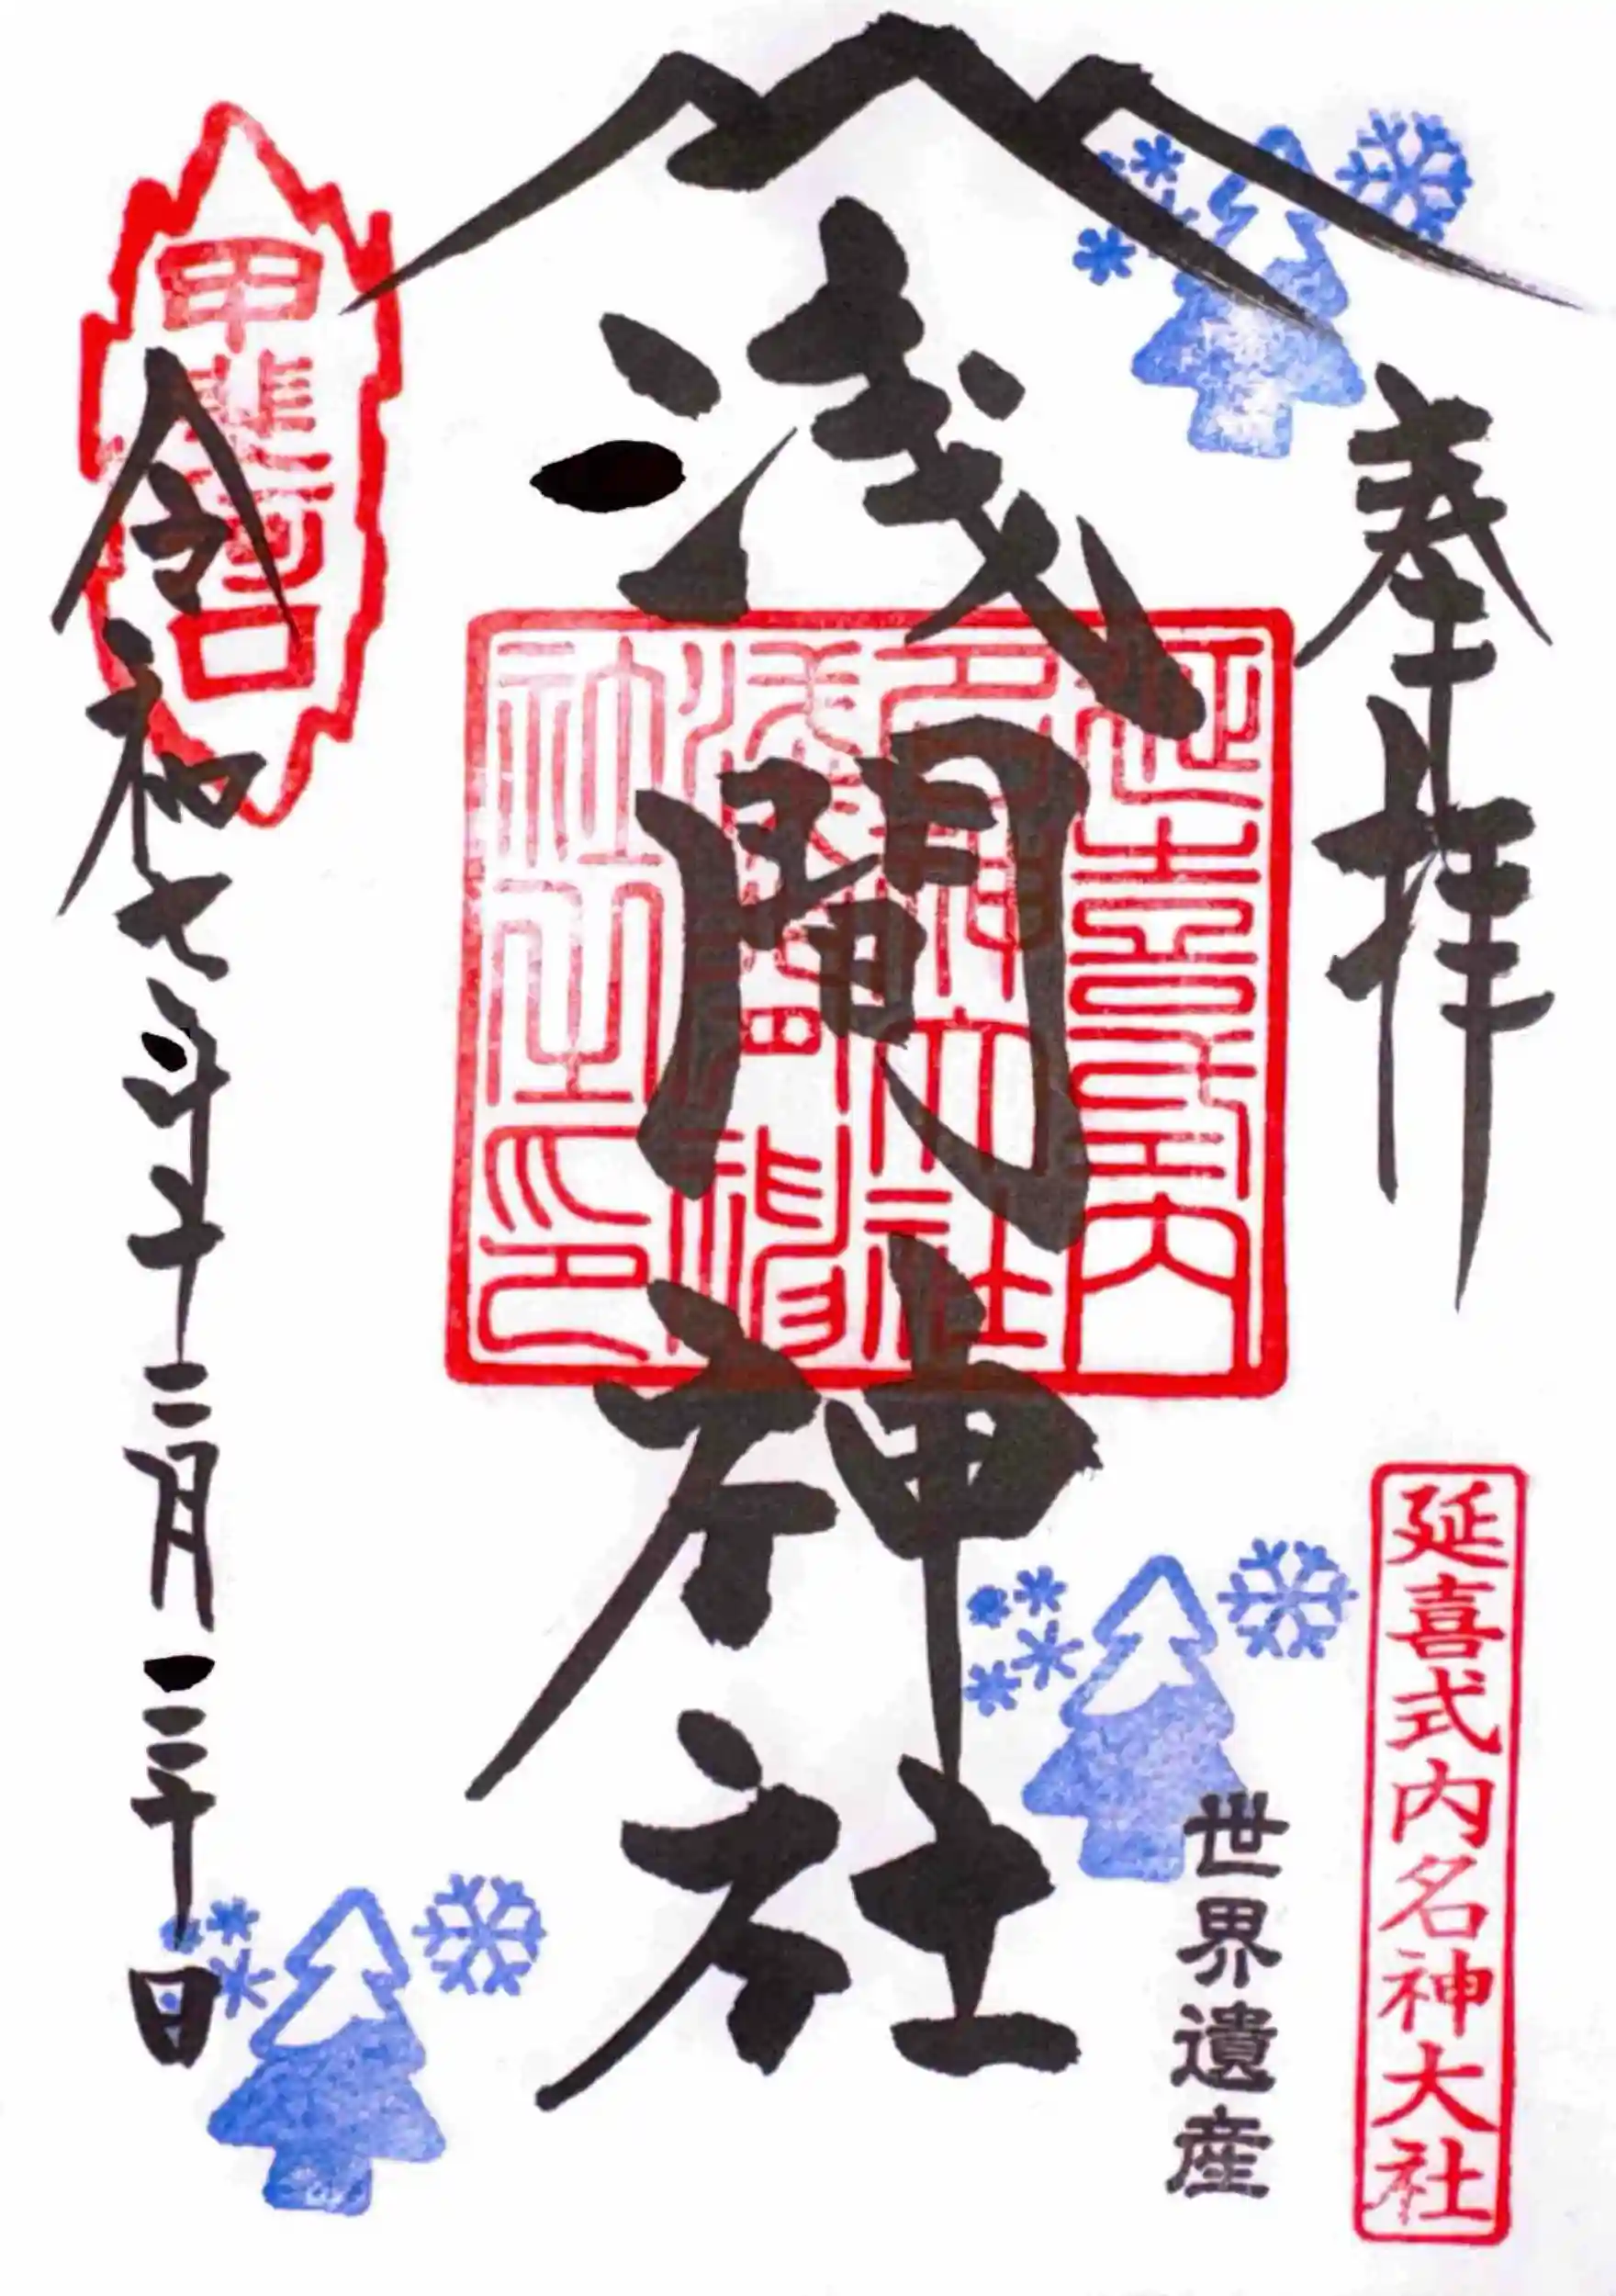 奉拝
延喜式内名神大社
世界遺産
浅間神社
延喜式内
名神大社
浅間神
社之印
甲斐河口
令和七年十二月三十日